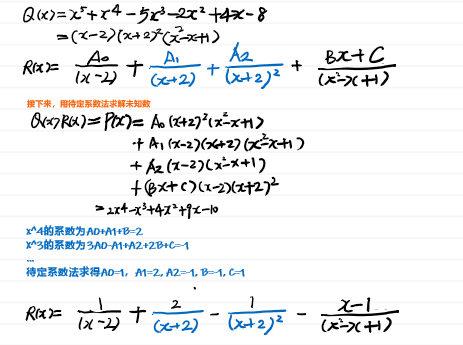 Q(x)= x⁵+x⁴-5x³-2x²+4x-8
=(x-2)(x+2)²(x²-x+1)
R(x)= A₀/(x-2) + A₁/(x+2) + A₂/(x+2)² + Bx+C/(x²-x+1)
接下来，用待定系数法求解未知数
Q(x)R(x)=P(x)= A₀(x+2)²(x²-x+1)
+A₁(x-2)(x+2)(x²-x+1)
+A₂(x-2)(x²-x+1)
+(Bx+C)(x-2)(x+2)²
=2x⁴-x³+4x²+9x-10
x^4的系数为A0+A1+B=2
x^3的系数为3A0-A1+A2+2B+C=-1
...
待定系数法求得A0=1，A1=2, A2=-1, B=-1, C=1
R(x)= 1/(x-2) + 2/(x+2) - 1/(x+2)² - x-1/(x²-x+1)